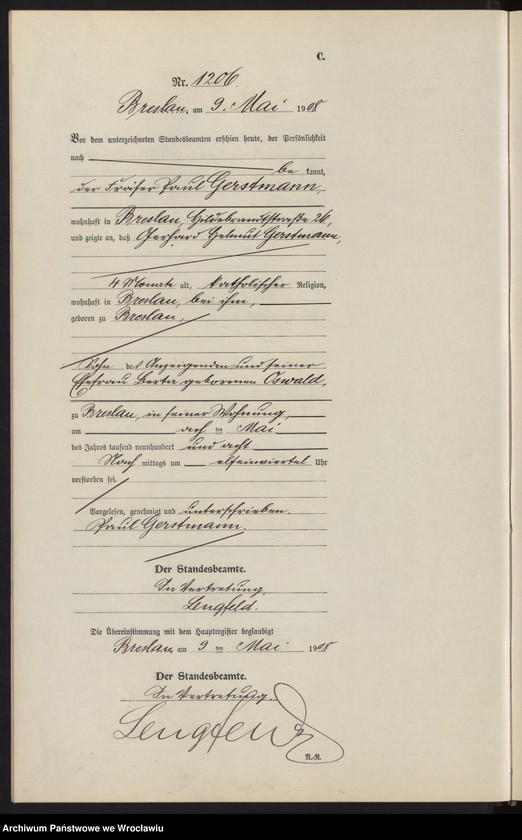 C.
Nr. 1206.
Breslau, am 9. Mai 1908
Vor dem unterzeichneten Standesbeamten erschien heute, der Persönlichkeit
nach
be kannt,
der Paul Gerstmann,
wohnhaft in Breslau, Hildebrandtstraße 26,
und zeigte an, daß Gerhard Helmut Gerstmann,
4 Monate alt, katholischer Religion,
wohnhaft in Breslau, bei ihm,
geboren zu Breslau,
Sohn des Anzeigenden und seiner
Ehefrau Berta geborenen Oswald,
zu Breslau, in seiner Wohnung
am acht ten Mai
des Jahres tausend neunhundert und acht
Nach mittags um elfeinviertel Uhr
verstorben sei.
Vorgelesen, genehmigt und unterschrieben.
Paul Gerstmann.
Der Standesbeamte.
In Vertretung,
Lengfeld.
Die Übereinstimmung mit dem Hauptregister beglaubigt
Breslau, am 9 ten Mai 1908
Der Standesbeamte.
In Vertretung.
Lengfeld
N.-R.
Archiwum Państwowe we Wrocławiu